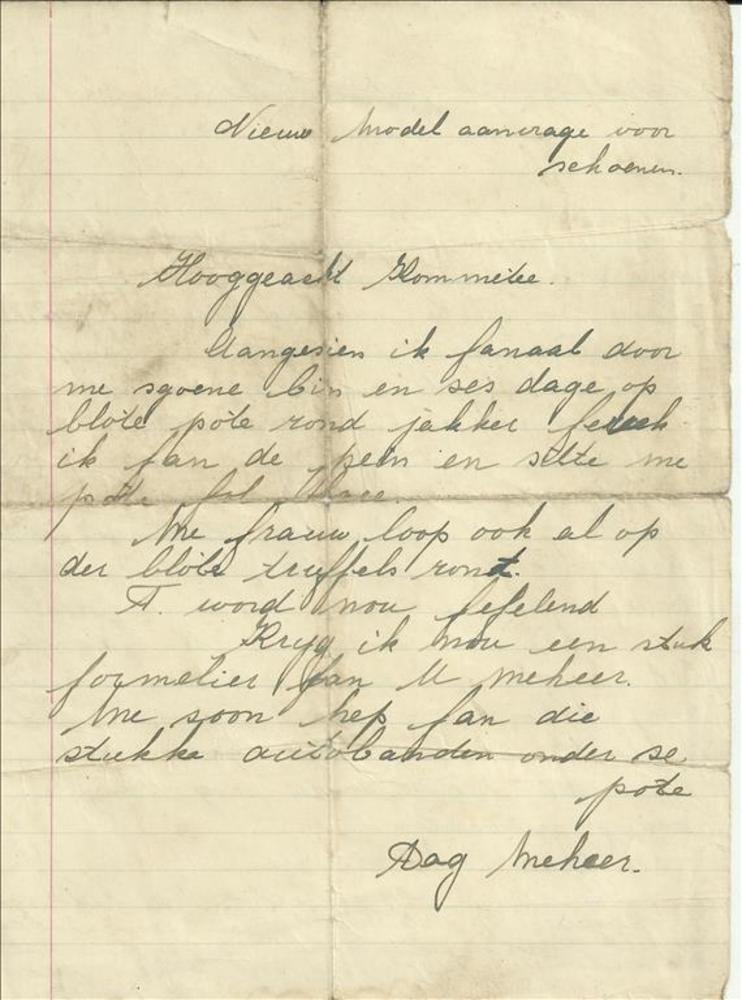 Nieuw Model aanvrage voor
schoenen.
Hooggeacht Kommitee.
Aangesien ik fanaal door
me sgoene bin en ses dage op
blote pote rond jakker ferrek
ik fan de pein en sitte me
pote fol blare.
Me frauw loop ook al op
der blote truffels ront.
T. word nou fefelend
Kryg ik nou een stuk
formelier fan U meheer.
Me soon hep fan die
stukke autobanden onder se
pote
Dag Meheer.